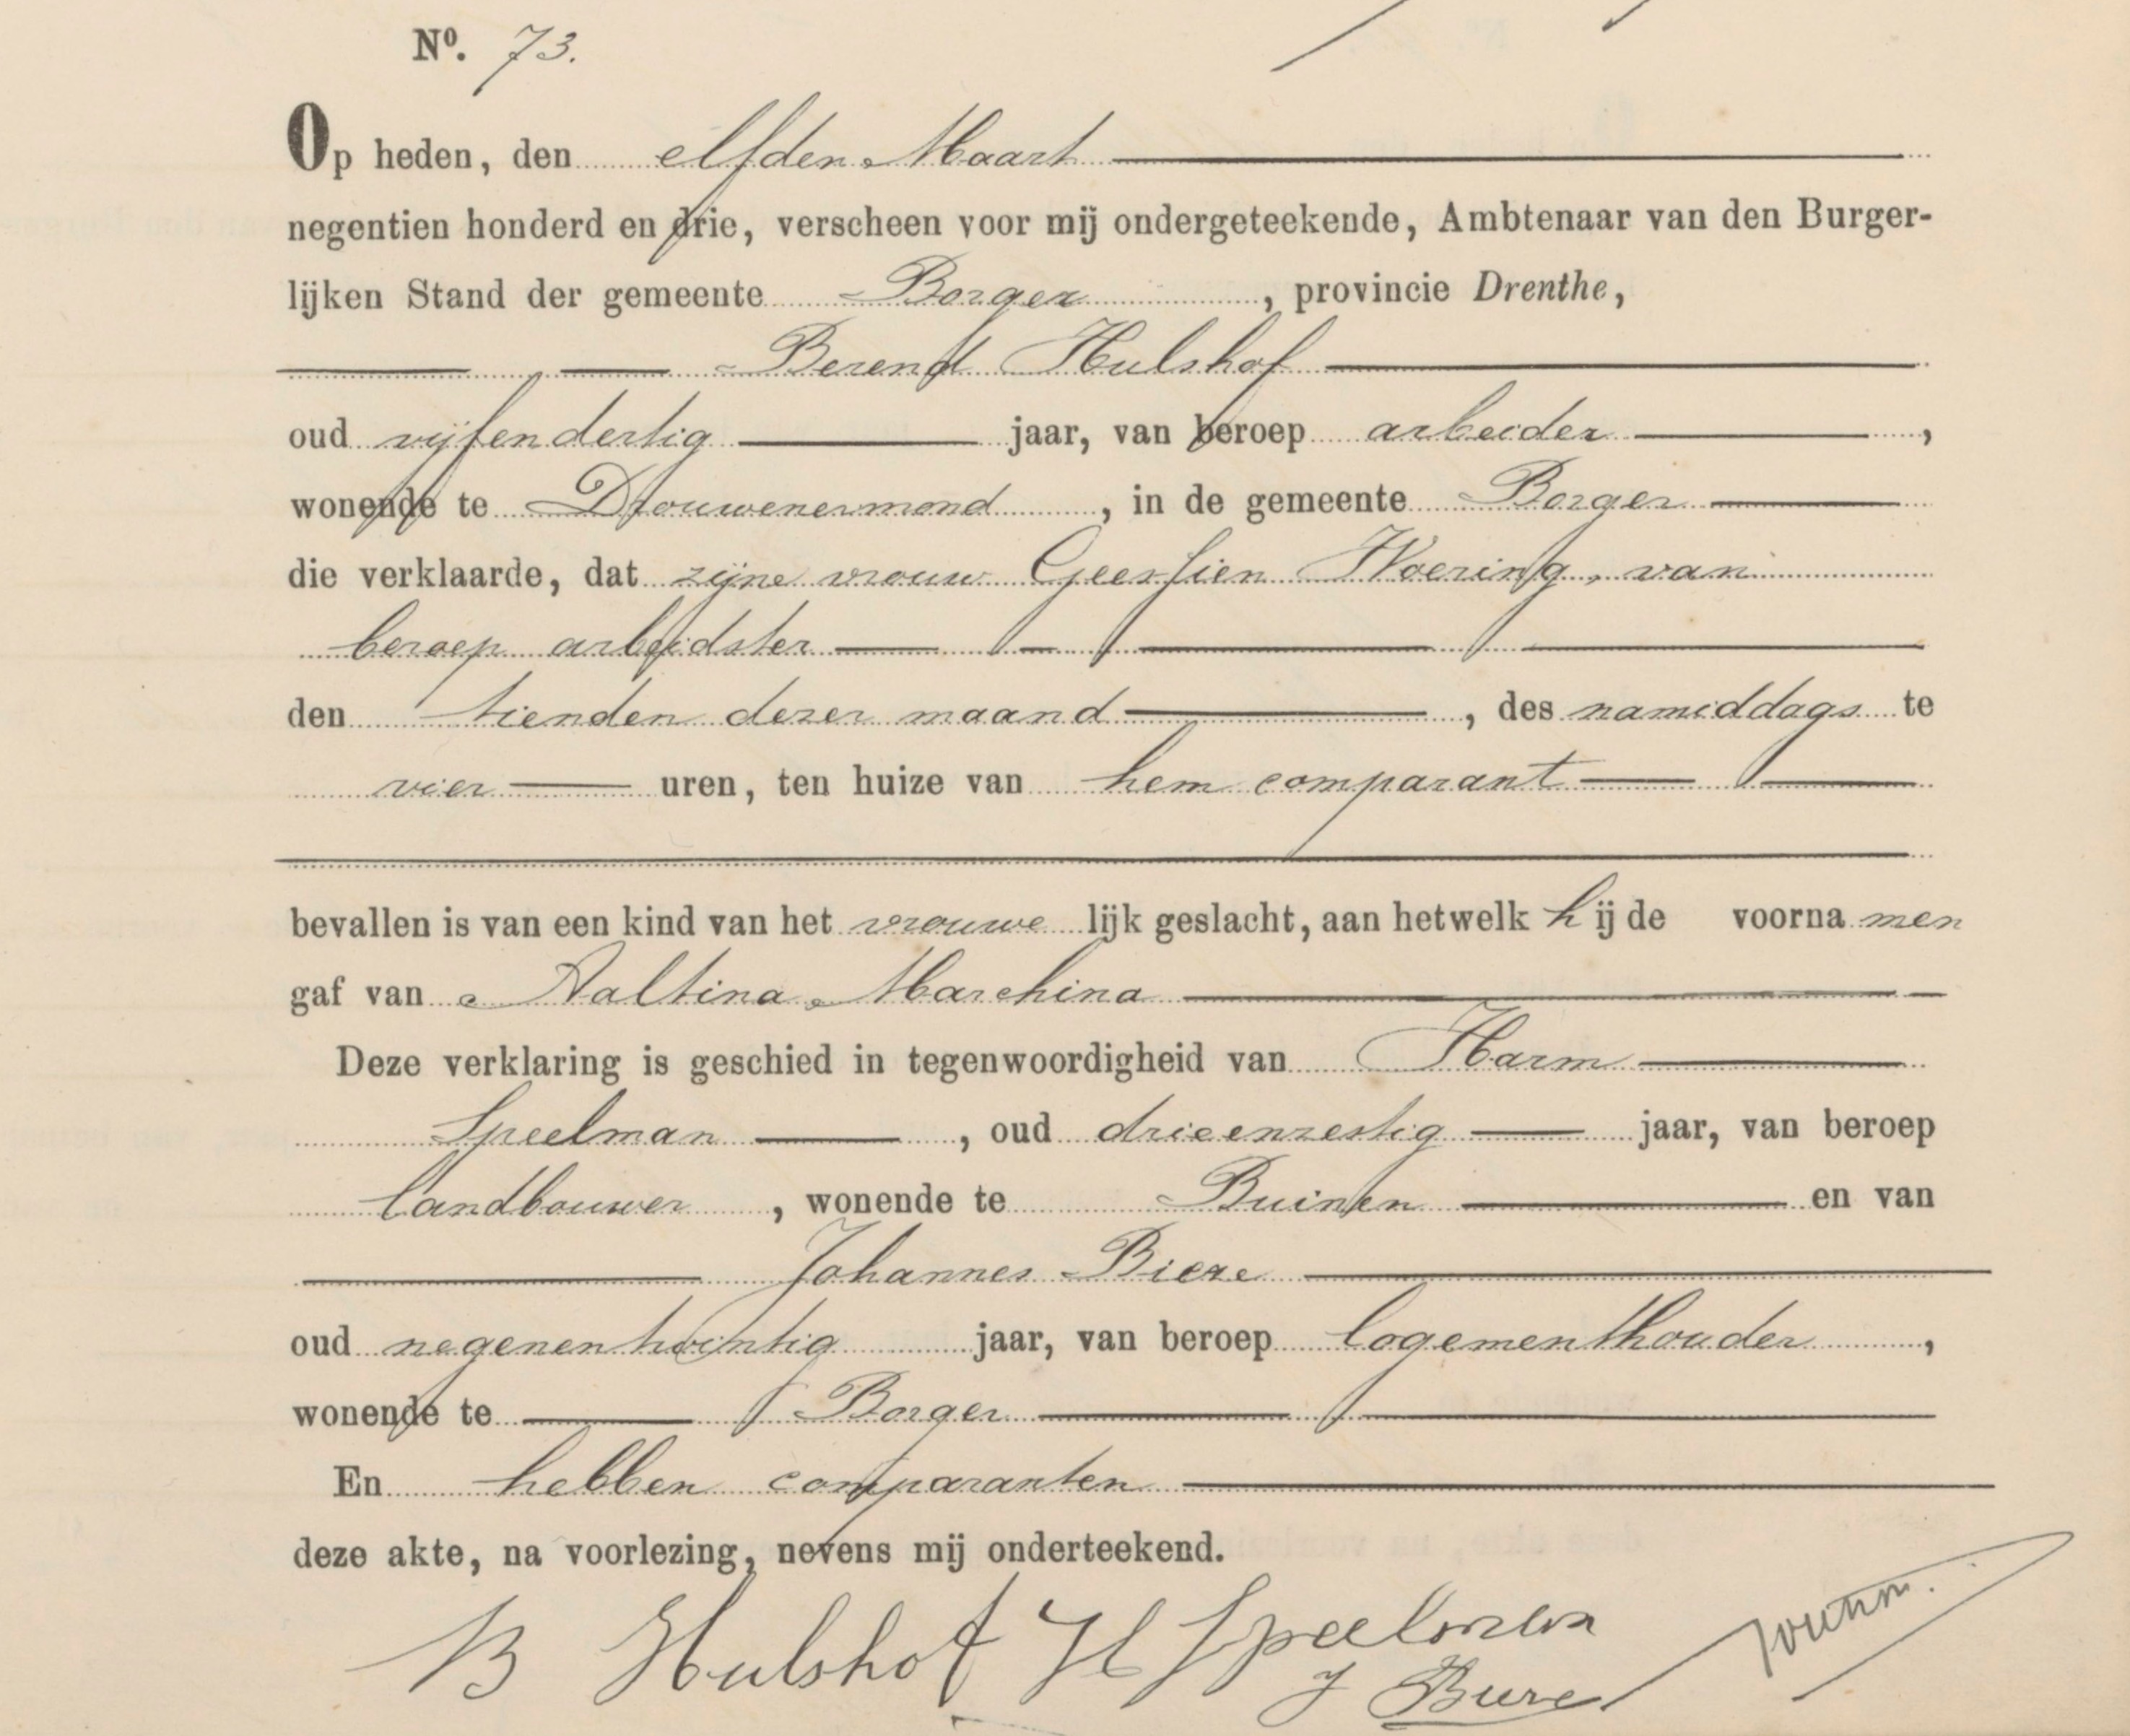 Nº. 73.
Op heden, den elfden Maart
negentien honderd en drie, verscheen voor mij ondergeteekende, Ambtenaar van den Burger-
lijken Stand der gemeente Borger, provincie Drenthe,
Berend Hulshof
oud vijfendertig jaar, van beroep arbeider,
wonende te Drouwenermond, in de gemeente Borger
die verklaarde, dat zijne vrouw Geessien Woering, van
beroep arbeidster
den tienden dezer maand, des namiddags te
vier uren, ten huize van hem comparant
bevallen is van een kind van het vrouwelijk geslacht, aan hetwelk hij de voornamen
gaf van Aaltina Marchina
Deze verklaring is geschied in tegenwoordigheid van Harm
Speelman, oud drieenzestig jaar, van beroep
landbouwer, wonende te Buinen en van
Johannes Biere
oud negenentwintig jaar, van beroep logementhouder,
wonende te Borger
En hebben comparanten
deze akte, na voorlezing, nevens mij onderteekend.
B Hulshof H Speelman
J Biere